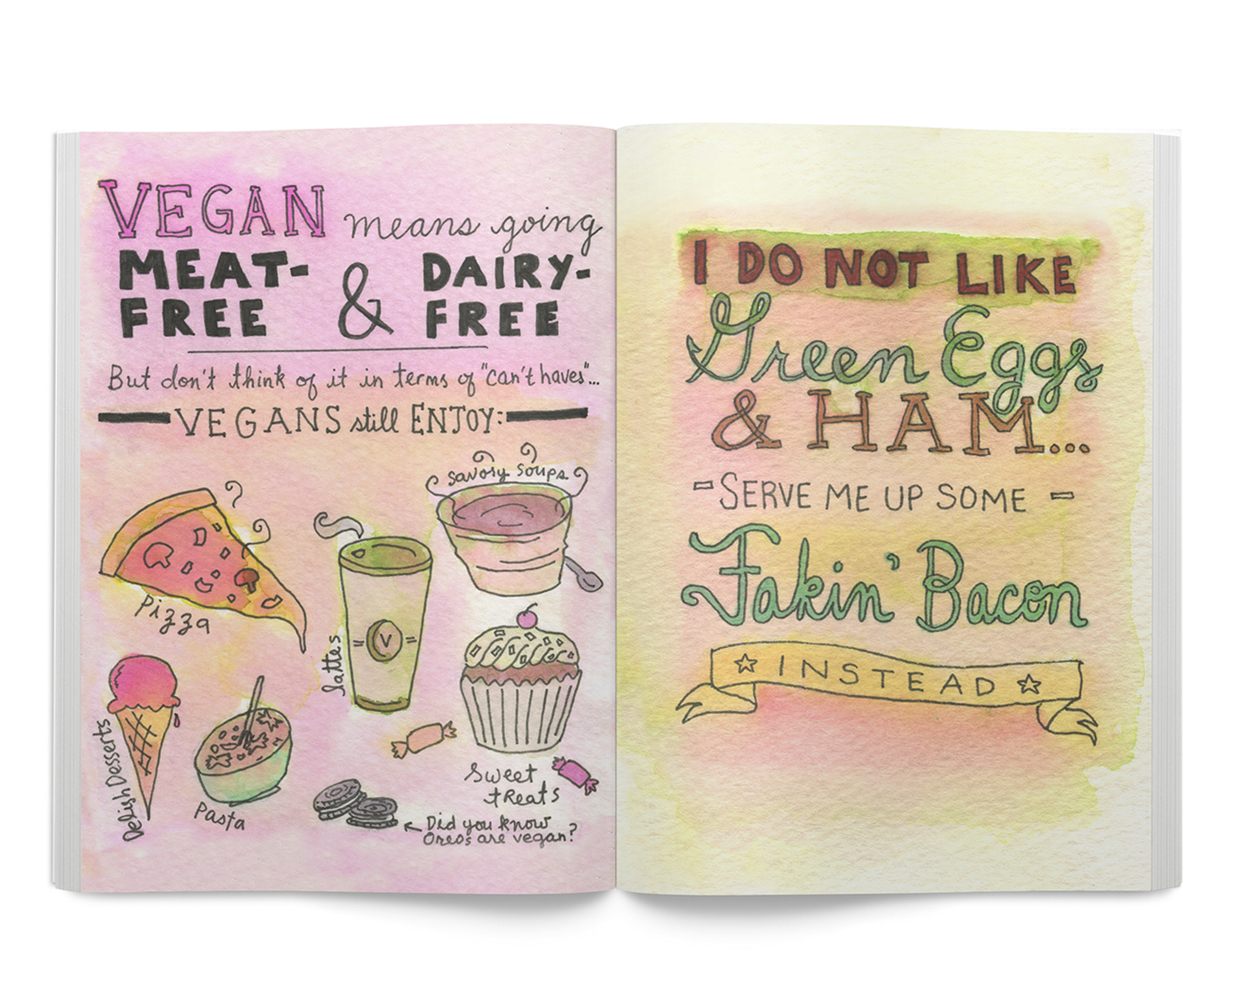 VEGAN means going
MEAT- & DAIRY-
FREE FREE
But don't think of it in terms of "can't haves"...
VEGANS still ENJOY:
savory soups
Pizza
lattes
V
Delish Desserts
Pasta
Sweet
treats
Did you know
Oreos are vegan?
I DO NOT LIKE
Green Eggs
& HAM...
-SERVE ME UP SOME-
Fakin' Bacon
INSTEAD